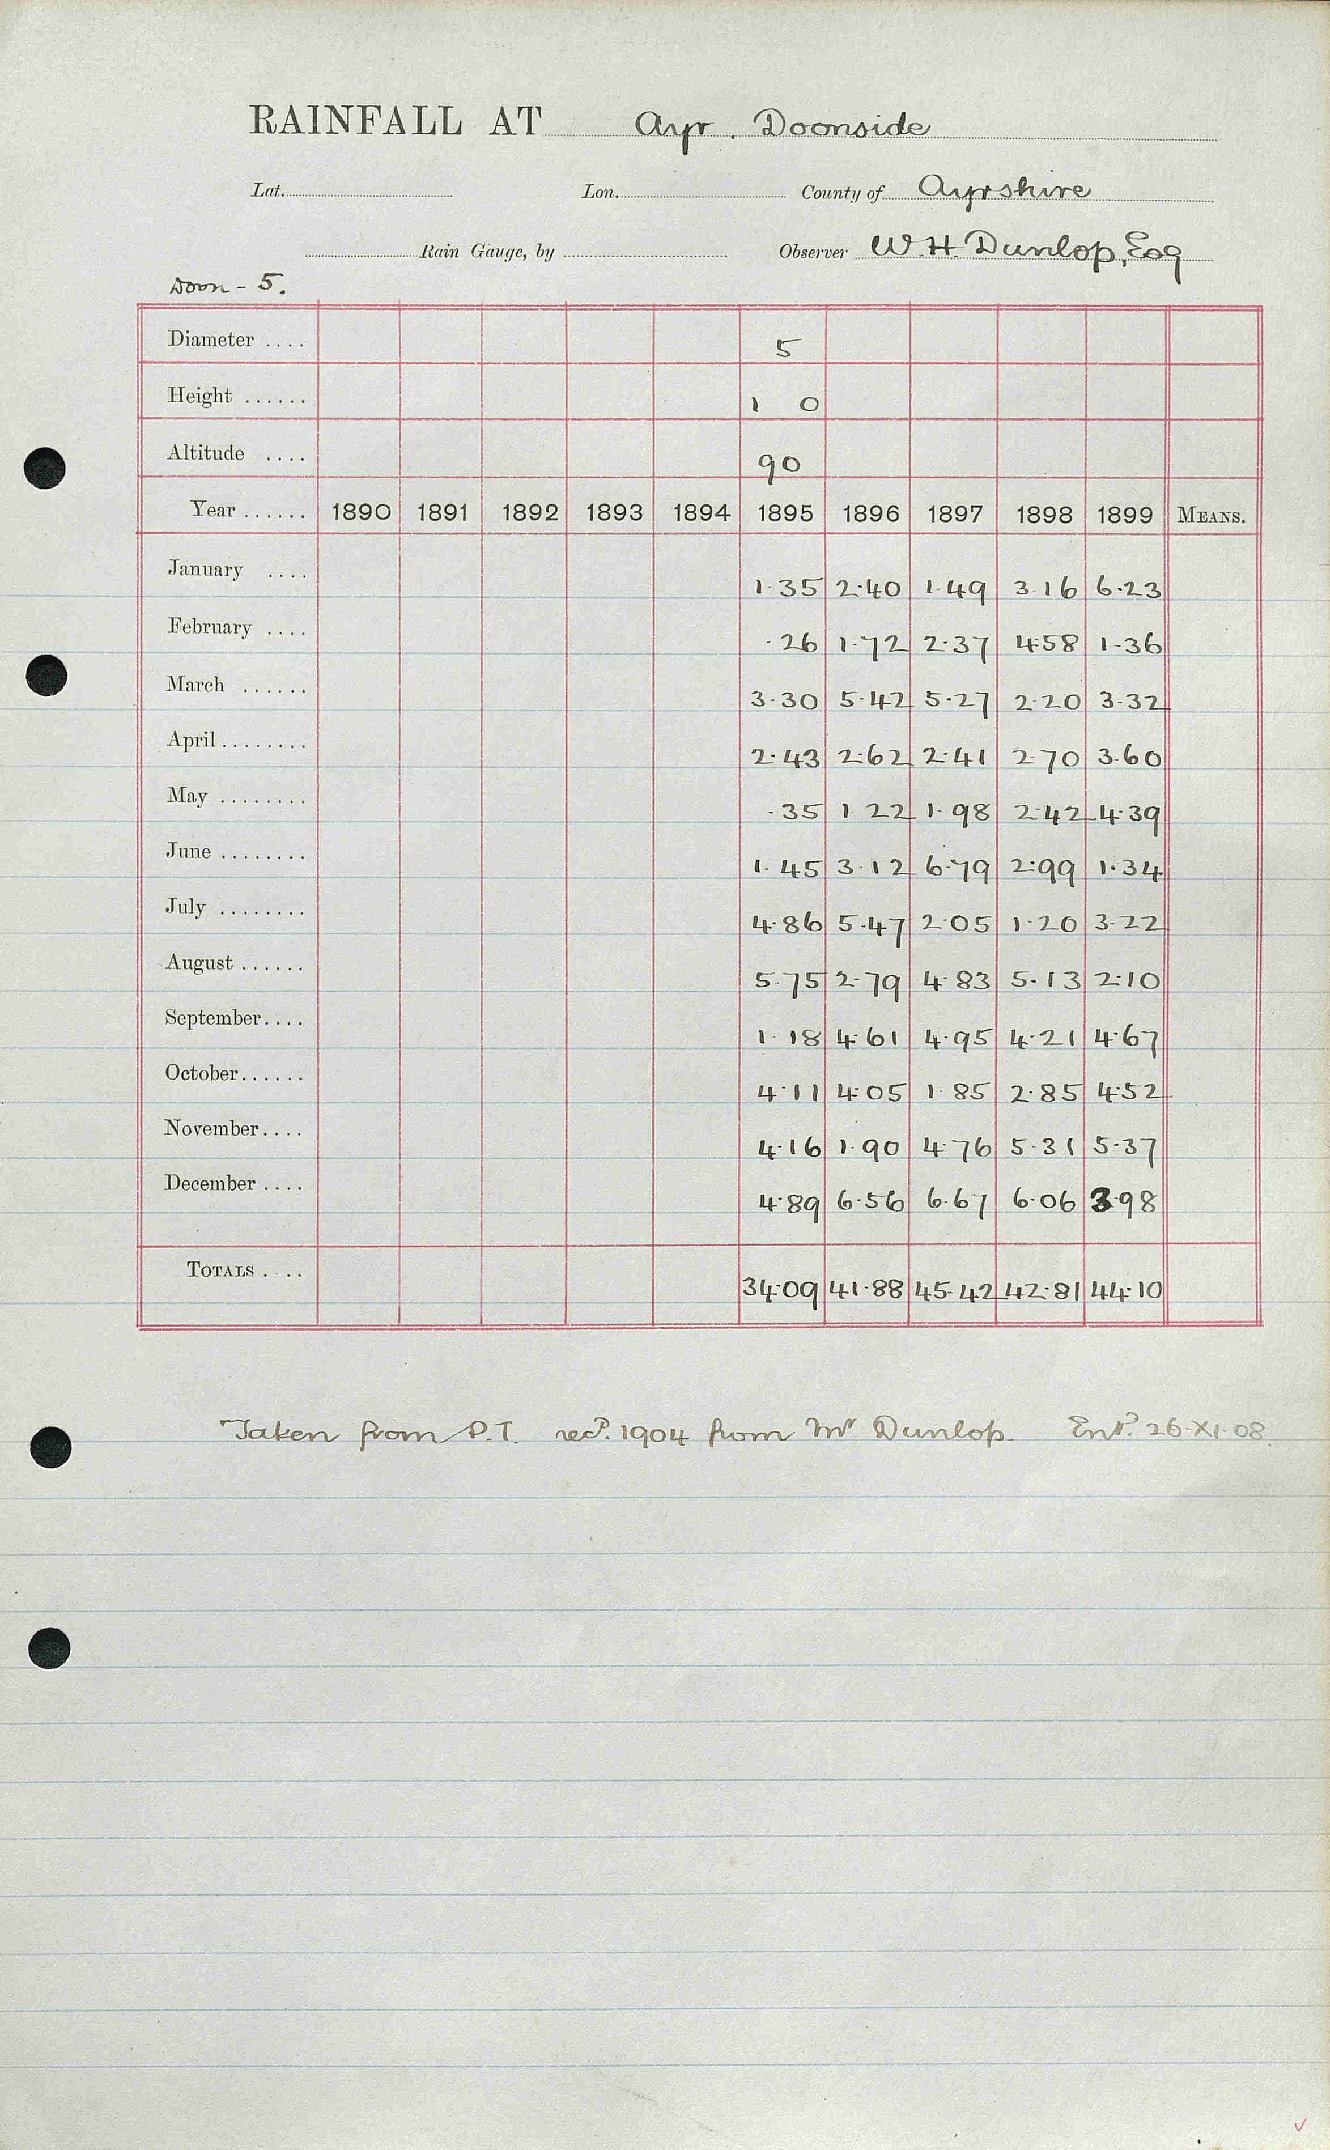 RAINFALL AT Ayr. Doonside
Lat. Lon. County of Ayrshire
Rain Gauge, by Observer W. H. Dunlop, Esq
Doon - 5.
Diameter .... 5
Height ...... 1 0
Altitude .... 90
Year ...... 1890 1891 1892 1893 1894 1895 1896 1897 1898 1899 MEANS.
January .... 1.35 2.40 1.49 3.16 6.23
February .... .26 1.72 2.37 4.58 1.36
March ...... 3.30 5.42 5.27 2.20 3.32
April ........ 2.43 2.62 2.41 2.70 3.60
May ........ .35 1.22 1.98 2.42 4.39
June ........ 1.45 3.12 6.79 2.99 1.34
July ........ 4.86 5.47 2.05 1.20 3.22
August ...... 5.75 2.79 4.83 5.13 2.10
September.... 1.18 4.61 4.95 4.21 4.67
October...... 4.11 4.05 1.85 2.85 4.52
November.... 4.16 1.90 4.76 5.31 5.37
December .... 4.89 6.56 6.67 6.06 3.98
TOTALS .... 34.09 41.88 45.42 42.81 44.10
Taken from P.T. recd. 1904 from Mr Dunlop. Entd. 26.XI.08.